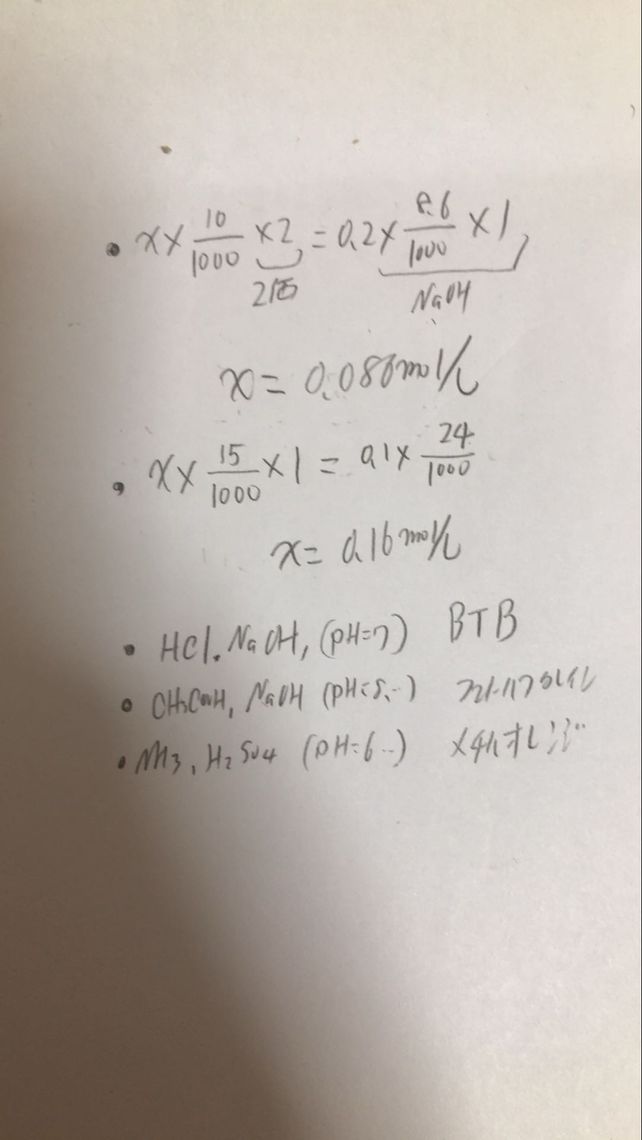 • x× 10/1000 ×2 = 0.2× 8.6/1000 ×1
2価
NaOH
x= 0.086mol/L
• x× 15/1000 ×1 = 0.1× 24/1000
x= 0.16mol/L
• HCl. NaOH, (pH=7) BTB
• CH3COOH, NaOH (pH=8、..) フェノールフタレイン
• NH3, H2SO4 (pH=6..) メチルオレンジ